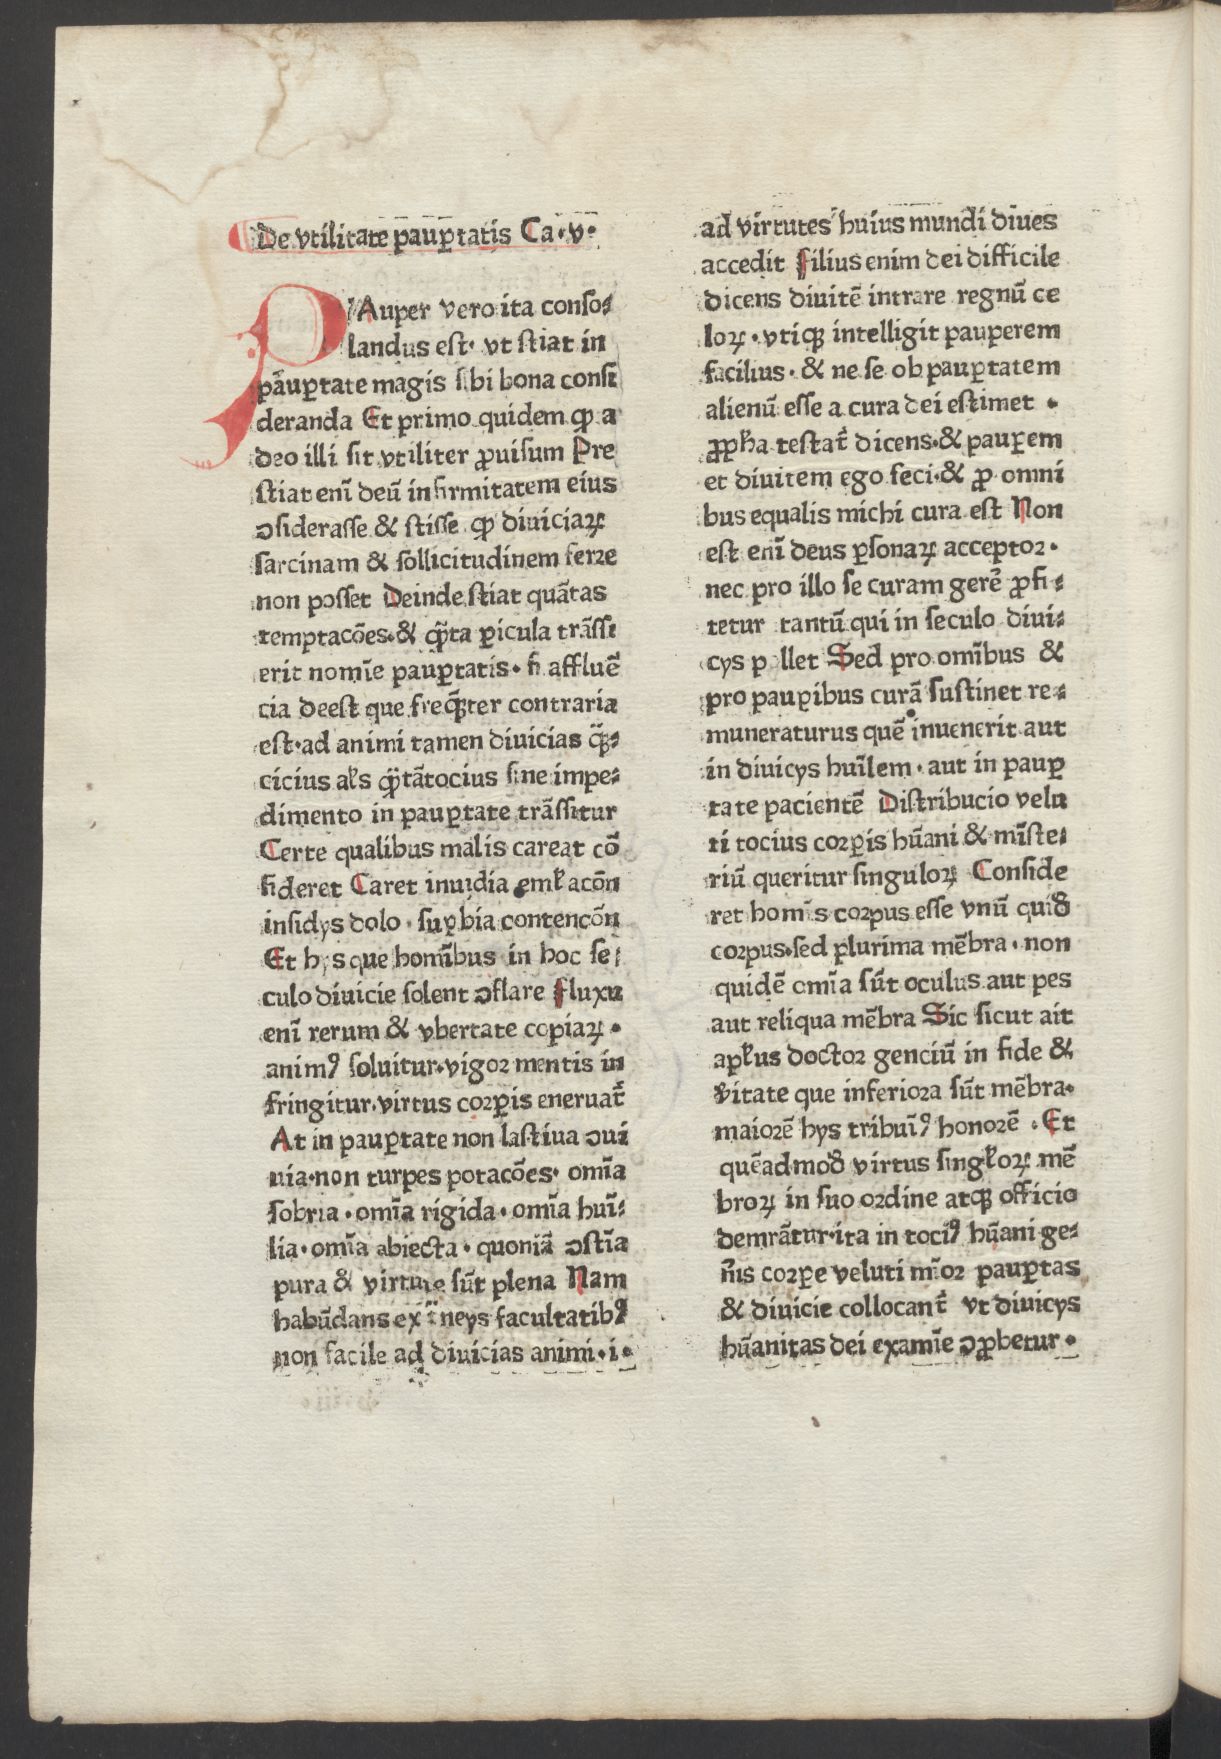 De vtilitate pauꝑtatis Ca·v·
PAuper vero ita conso⸗
landus est· vt sciat in
pāuꝑtate magis sibi bona consi
deranda Et primo quidem ꝙ a
deo illi sit vtiliter ꝓuisum Pre
sciat enī deū infirmitatem eius
ↄsiderasse & scisse ꝙ diuiciaꝝ
sarcinam & sollicitudinem ferre
non posset Deinde sciat quātas
temptacōes·& q̄ta ꝑicula trāssi
erit nomīe pauꝑtatis· si affluē
cia deest que freq̄ter contraria
est·ad animi tamen diuicias q̄⸗
cicius als q̄tātocius sine impe⸗
dimento in pauꝑtate trāssitur
Certe qualibus malis careat cō
sideret Caret inuidia emlacōn
insidys dolo· suꝑbia contencōn
Et hys que homībus in hoc se⸗
culo diuicie solent ↄflare Fluxu
enī rerum & vbertate copiaꝝ·
animꝰ soluitur·vigor mentis in
fringitur·virtus corꝑis eneruat̄
At in pauꝑtate non lasciua ↄui
uia·non turpes potacōes· omīa
sobria· omīa rigida· omīa huī⸗
lia· omīa abiecta· quoniā ↄscīa
pura & virtute sūt plena Nam
habūdans ext̄neys facultatibꝰ
non facile ad diuicias animi·i·
ad virtutes huius mundi diues
accedit Filius enim dei difficile
dicens diuitē intrare regnū ce
loꝝ· vtiqꝫ intelligit pauperem
facilius· & ne se ob pauꝑtatem
alienū esse a cura dei estimet ·
ꝓpha testat̄ dicens·& pauꝑem
et diuitem ego feci·& ꝓ omni
bus equalis michi cura est Non
est enī deus ꝑsonaꝝ acceptor·
nec pro illo se curam gerē ꝓfi⸗
tetur tantū qui in seculo diui⸗
cys pollet Sed pro omībus &
pro pauꝑibus curā sustinet re⸗
muneraturus quē inuenerit aut
in diuicys huīlem· aut in pauꝑ
tate pacientē Distribucio velu
ti tocius corꝑis hūani & mīste⸗
riū queritur singuloꝝ Conside
ret homīs corpus esse vnū quid̄
corpus·sed plurima mēbra· non
quidē omīa sūt oculus aut pes
aut reliqua mēbra Sic sicut ait
aplus doctor genciū in fide &
v̄itate que inferiora sūt mēbra·
maiorē hys tribuīꝰ honorē · Et
quēadmod̄ virtus singloꝝ mē
broꝝ in suo ordine atqꝫ officio
demrātur·ita in tociꝰ hūani ge⸗
n̄is corꝑe veluti mīor pauꝑtas
& diuicie collocant̄ vt diuicys
hūanitas dei examīe ↄꝓbetur·